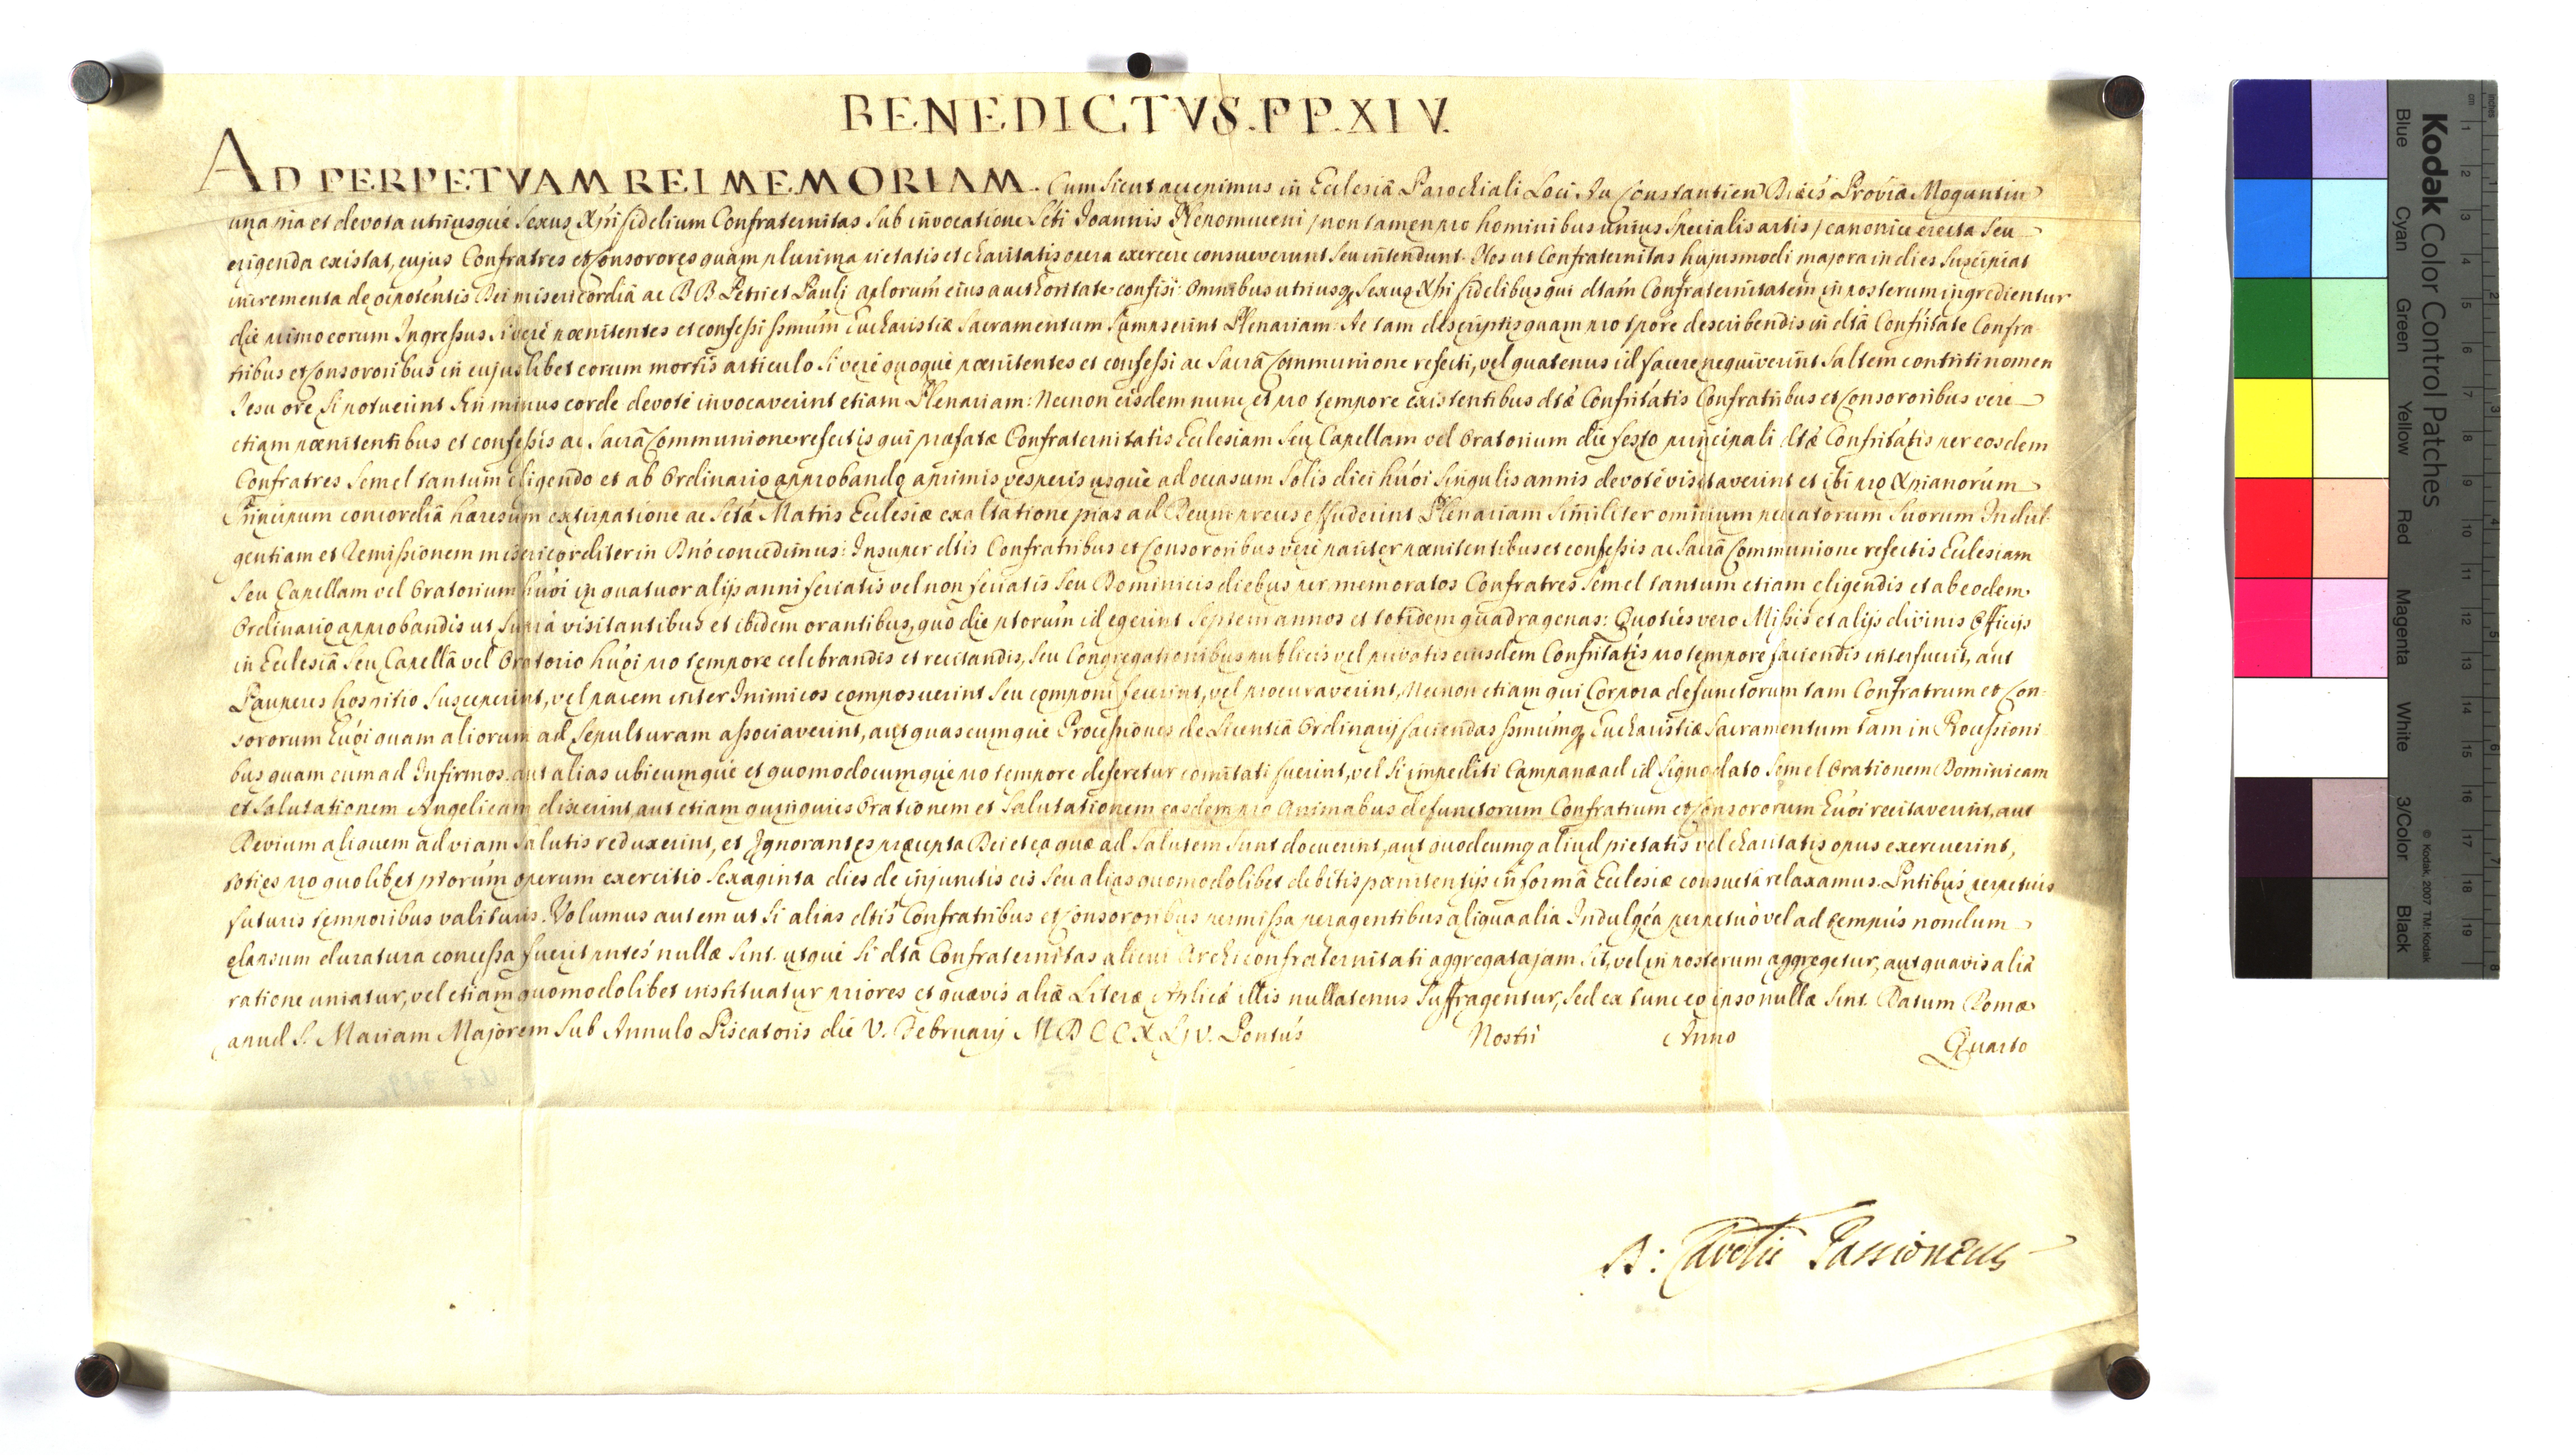 BENEDICTVS. PP. XIV.
AD PERPETVAM REI MEMORIAM. Cum sicut accepimus in Ecclesiâ Parochiali Loci Au Constantien Dioecs Provîa Moguntin
una pia et devota utriusque sexus Xpifidelium Confraternitas sub invocatione Scti Joannis Nepomuceni / non tamen pro hominibus unius specialis artis / canonice erecta seu
erigenda existat, cujus Confratres et Consorores quam plurima pietatis et charitatis opera exercere consueverunt seu intendunt. Nos ut Confraternitas hujusmodi majora in dies suscipiat
incrementa de oipotentis Dei misericordiâ ac BB Petri et Pauli aplorum eius auctoritate confisi: Omnibus utriusq sexus Xpifidelibus qui dtam Confraternitatem in posterum ingredientur
die primo eorum Ingressus si verè poenitentes et confessi ssmum Eucharistiæ Sacramentum sumpserint Plenariam: Ac tam descriptis quam pro tpore describendis in dtâ Confritate Confra-
tribus et Consororibus in cujuslibet eorum mortis articulo si verè quoque poenitentes et confessi ac Sacrâ Communione refecti, vel quatenus id facere nequiverint saltem contriti nomen
Jesu ore si potuerint sin minus corde devotè invocaverint etiam Plenariam: Necnon eisdem nunc et pro tempore existentibus dtæ Confritatis Confratribus et Consororibus verè
etiam poenitentibus et confessis ac Sacrâ Communione refectis qui præfatæ Confraternitatis Ecclesiam seu Capellam vel Oratorium die festo principali dtæ Confritatis per eosdem
Confratres semel tantum eligendo et ab Ordinario approbando a primis vesperis usque ad occasum solis diei hujoi singulis annis devotè visitaverint et ibi pro Xpianorum
Principum concordiâ hæresum extirpatione ac Sctæ Matris Ecclesiæ exaltatione pias ad Deum preces effuderint Plenariam similiter omnium peccatorum suorum Indul-
gentiam et Remissionem misericorditer in Dno concedimus: Insuper dtis Confratribus et Consororibus verè pariter poenitentibus et confessis ac Sacrâ Communione refectis Ecclesiam
seu Capellam vel Oratorium hujoi in quatuor alijs anni feriatis vel non feriatis seu Dominicis diebus per memoratos Confratres semel tantum etiam eligendis et ab eodem
Ordinario approbandis ut suprà visitantibus et ibidem orantibus, quo die ptorum id egerint septem annos et totidem quadragenas: Quoties vero Missis et alijs divinis Officijs
in Ecclesiâ seu Capellâ vel Oratorio hujoi pro tempore celebrandis et recitandis, seu Congregationibus publicis vel privatis eiusdem Confritatis pro tempore faciendis interfuerit, aut
Pauperes hospitio susceperint, vel pacem inter Inimicos composuerint seu componi fecerint, vel procuraverint, Necnon etiam qui Corpora defunctorum tam Confratrum et Con-
sororum hujoi quam aliorum ad sepulturam associaverint, aut quascumque Processiones de licentiâ Ordinarij faciendas ssmumq Eucharistiæ Sacramentum tam in Processioni-
bus quam cum ad Infirmos aut alias ubicumque et quomodocumque pro tempore deferetur comitati fuerint, vel si impediti Campanæ ad id signo dato semel Orationem Dominicam
et Salutationem Angelicam dixerint aut etiam quinquies Orationem et Salutationem easdem pro Animabus defunctorum Confratrum et Consororum hujoi recitaverint, aut
Devium aliquem ad viam salutis reduxerint, et Ignorantes præcepta Dei et ea quæ ad salutem sunt docuerint, aut quodcumq aliud pietatis vel charitatis opus exercuerint,
toties pro quolibet ptorum operum exercitio sexaginta dies de injunctis eis seu alias quomodolibet debitis poenitentijs in formâ Ecclesiæ consuetâ relaxamus. Pntibus perpetuis
futuris temporibus valituris. Volumus autem ut si alias dtis Confratribus et Consororibus premissa peragentibus aliqua alia Indulgea perpetuò vel ad tempus nondum
elapsum duratura concessa fuerit pntes nullæ sint. utque si dta Confraternitas alicui Archiconfraternitati aggregata jam sit, vel in posterum aggregetur, aut quavis aliâ
ratione uniatur, vel etiam quomodolibet instituatur priores et quævis aliæ Literæ Aplicæ illis nullatenus suffragentur, sed ex tunc eo ipso nullæ sint. Datum Romæ
apud S. Mariam Majorem sub Annulo Piscatoris die V. Februarij MDCCXLIV. Pontus Nostri Anno Quarto
D: Cardlis Passioneus
Kodak Color Control Patches
Blue Cyan Green Yellow Red Magenta White 3/Color Black
© Kodak, 2007 TM: Kodak
inches 1 2 3 4 5 6 7 8
cm 1 2 3 4 5 6 7 8 9 10 11 12 13 14 15 16 17 18 19